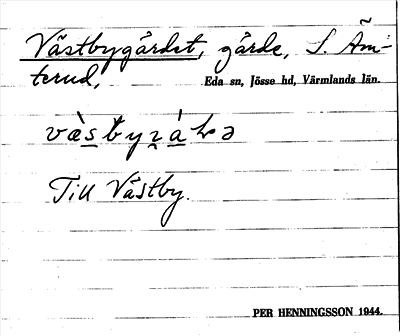 Västbygärdet, gärde, S. Äm-
terud,
Eda sn, Jösse hd, Värmlands län.
Till Västby.
PER HENNINGSSON 1944.